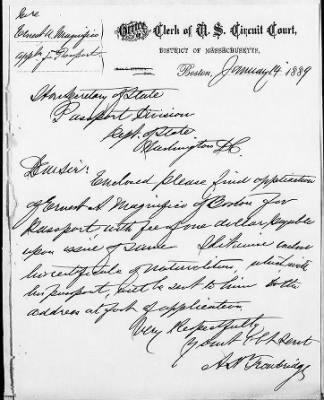 In re
Ernest A. Magnifico
appln for Passport
Office Clerk of U. S. Circuit Court,
DISTRICT OF MASSACHUSETTS,
Boston, January 14 1889
Hon Secretary of State
Passport Division
Dept. of State
Washington D.C.
Dear Sir: Enclosed please find application
of Ernest A. Magnifico of Boston for
Passport with fee of one dollar payable
upon issue of same. I likewise enclose
his certificate of naturalization, which with
his passport, will be sent to him to the
address at foot of application.
Very Respectfully
Your Obt Servt
A. H. Trowbridge